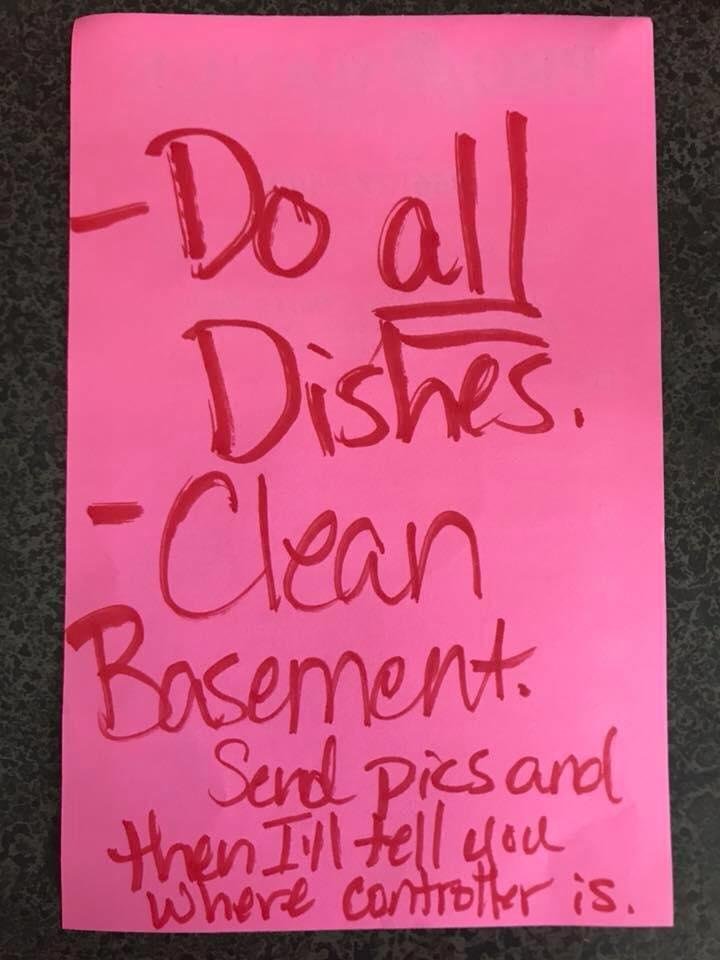 - Do all
Dishes.
- Clean
Basement.
Send pics and
then I'll tell you
where controller is.